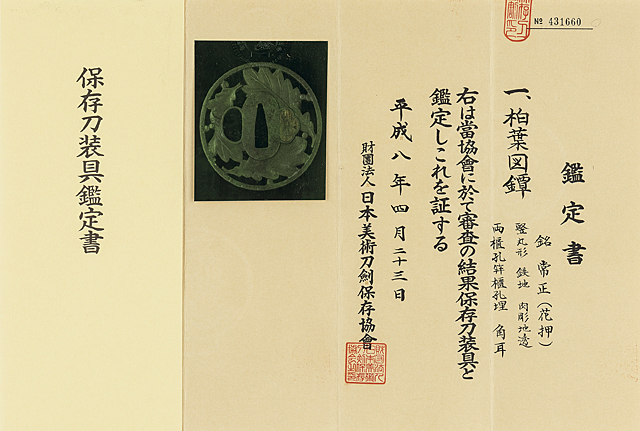 № 431660
鑑定書
一、柏葉図鐔
銘 常正(花押)
竪丸形 鉄地 肉彫地透
両櫃孔笄櫃孔埋 角耳
右は當協會に於て審査の結果保存刀装具と
鑑定しこれを証する
平成八年四月二十三日
財團法人日本美術刀劍保存協會
保存刀装具鑑定書